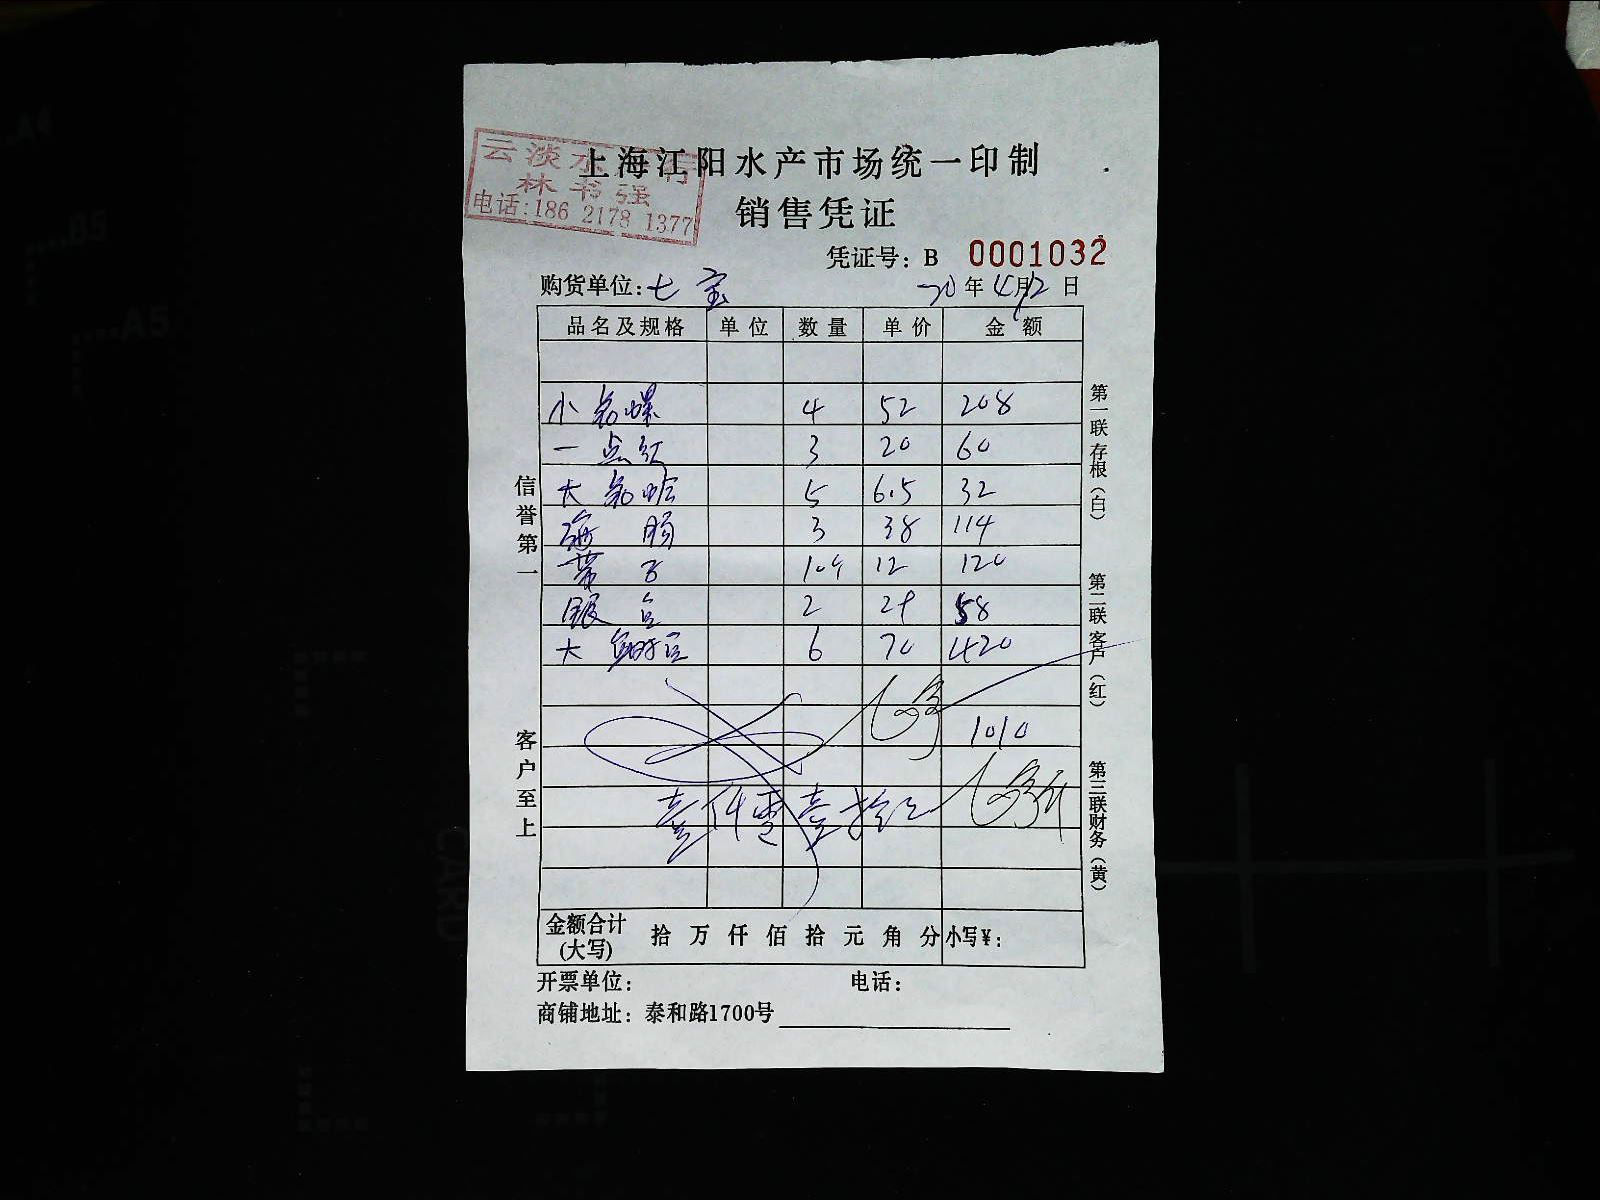 云淡水
林书强
电话:186 2178 1377
上海江阳水产市场统一印制
销售凭证
凭证号: B 0001032
购货单位: 七宝 20年4月12日
品名及规格 单位 数量 单价 金额
小 螺 4 52 208
一点红 3 20 60
大 蛤 5 6.5 32
海肠 3 38 114
带子 10个 12 120
银 2 29 58
大 6 70 420
1010
壹仟零壹拾元
金额合计(大写) 拾 万 仟 佰 拾 元 角 分 小写¥:
开票单位: 电话:
商铺地址: 泰和路1700号
信誉第一
客户至上
第一联存根(白)
第二联客户(红)
第三联财务(黄)
A4
B5
A5
CARD